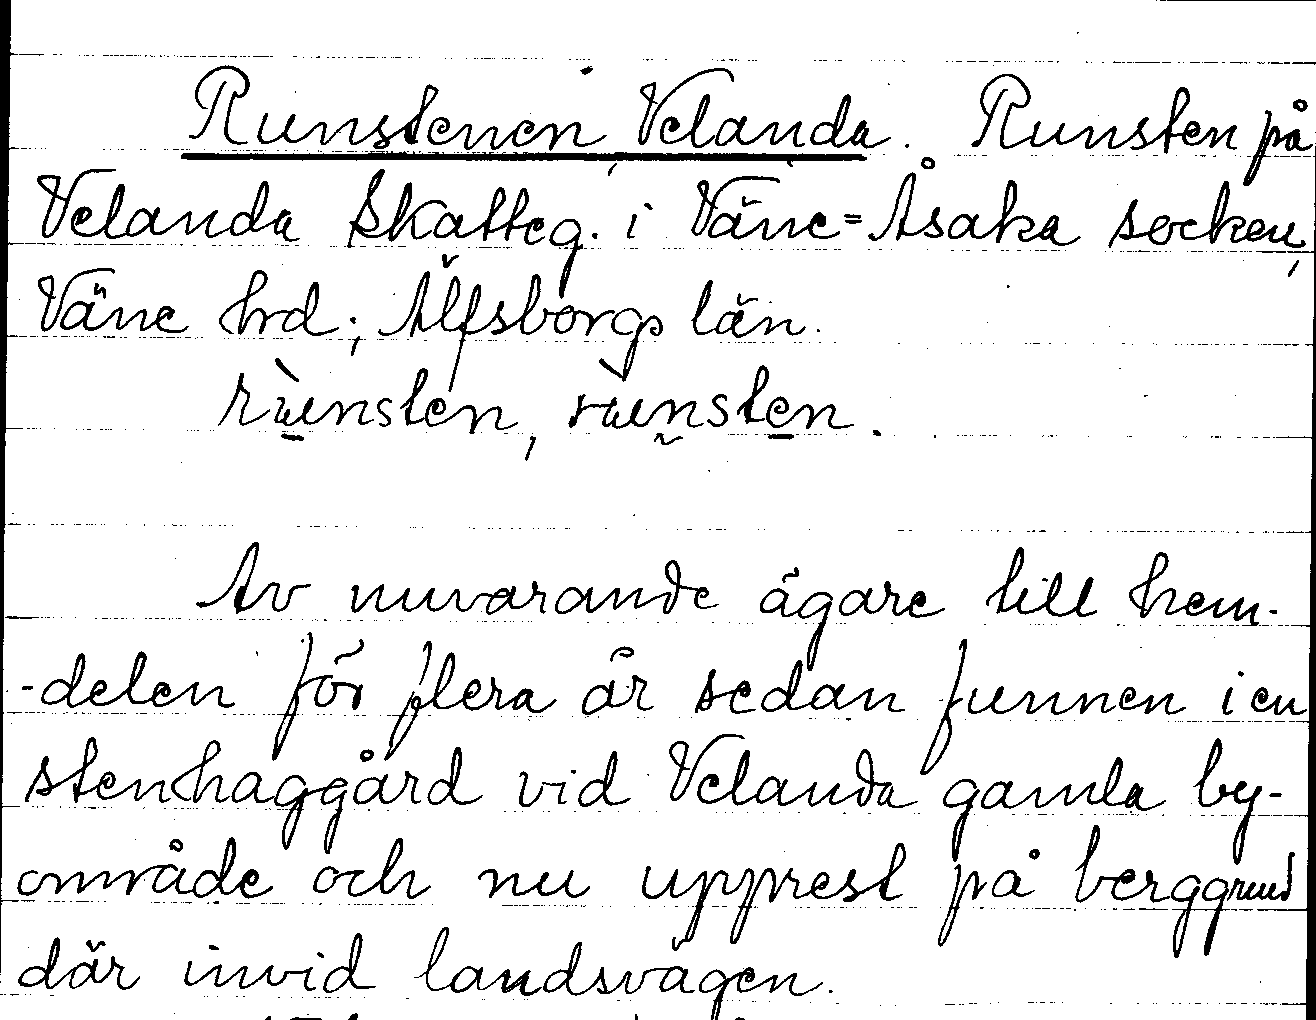 Runstenen, Velanda. Runsten på
Velanda Skatteg. i Väne=Åsaka socken,
Väne hrd; Älfsborgs län.
rùnsten, rùnsten.
Av nuvarande ägare till hem-
-delen för flera år sedan funnen i en
stenhaggård vid Velanda gamla by-
område och nu upprest på berggrund
där invid landsvägen.